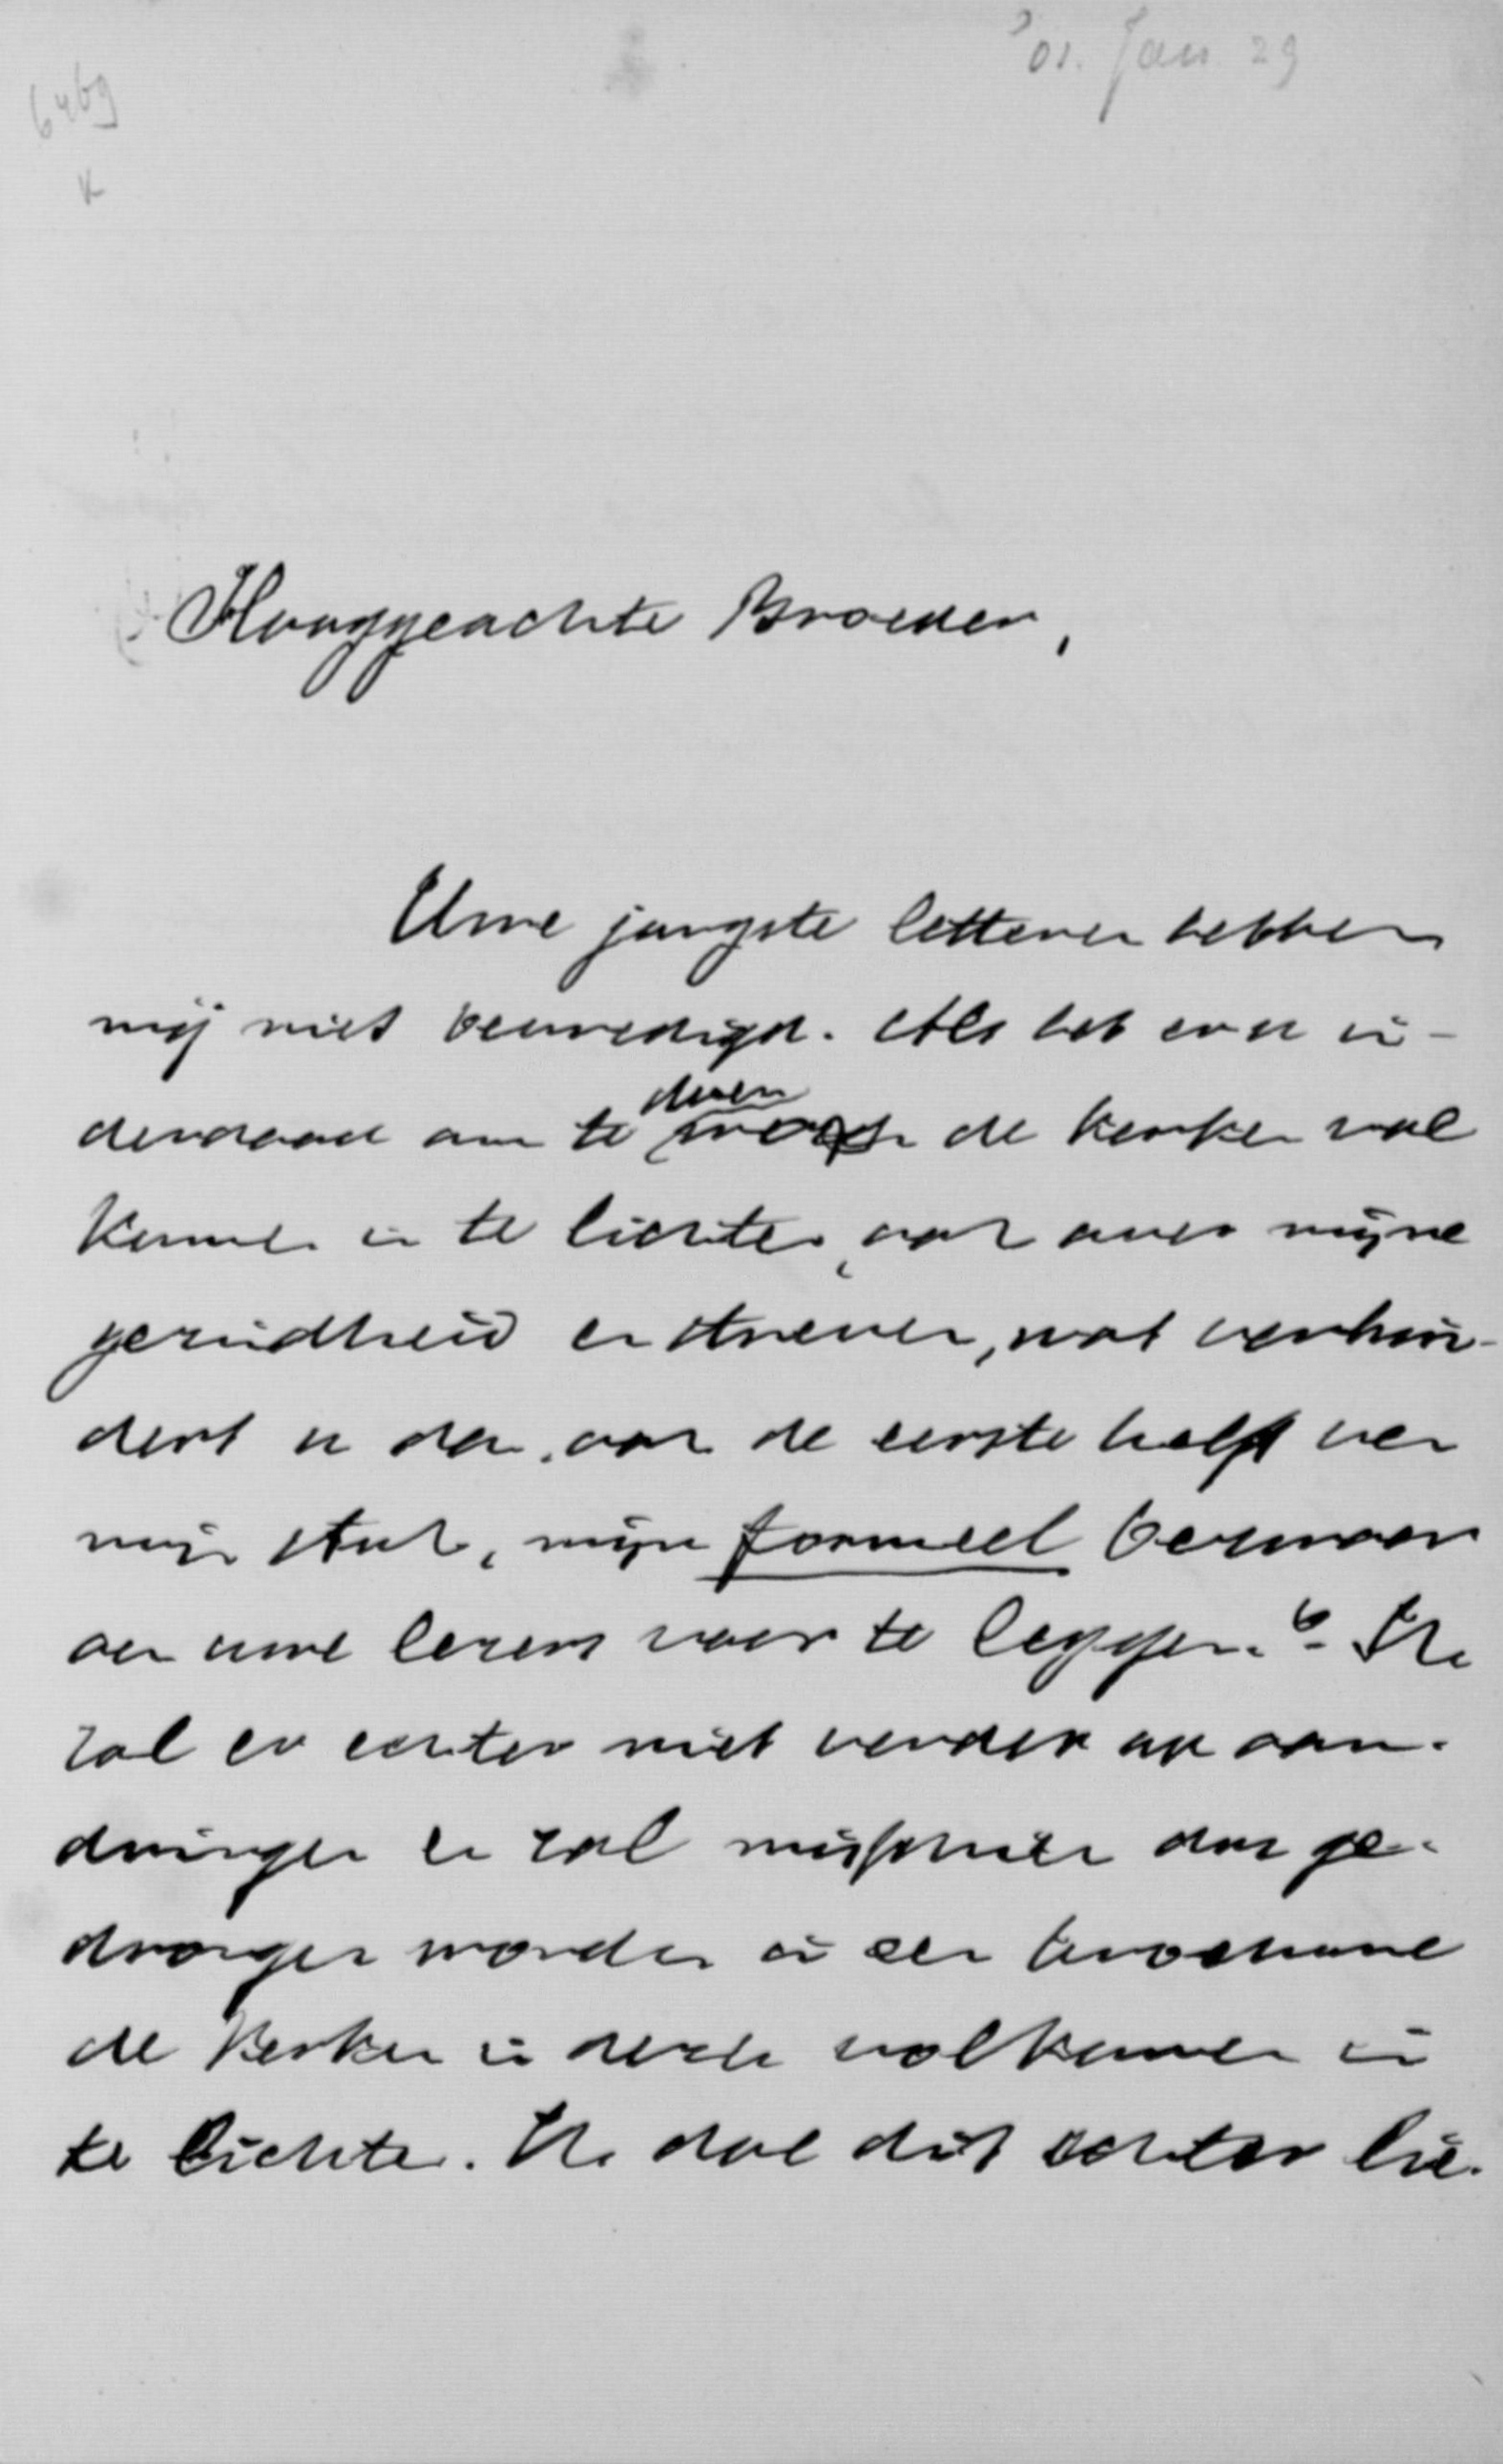 '01. Jan. 29
6469
K
Hooggeachte Broeder,
Uwe jongste letteren hebben
mij niet bevredigd. Als het er u in-
doen
derdaad om te de kerken vol
komen in te lichten, ook over mijne
gezindheid en streven, wat verhin-
dert u dan, ook de eerste helft van
mijn stuk, mijn formeel bezwaar
aan uwe lezers voor te leggen? Ik
zal er echter niet verder op aan-
dringen en zal misschien dan ge-
drongen worden in een brochure
de kerken in dezen volkomen in
te lichten. Ik doe dit echter lie-